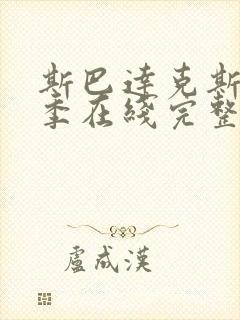 斯巴達克斯
季在綫完整
盧成漢